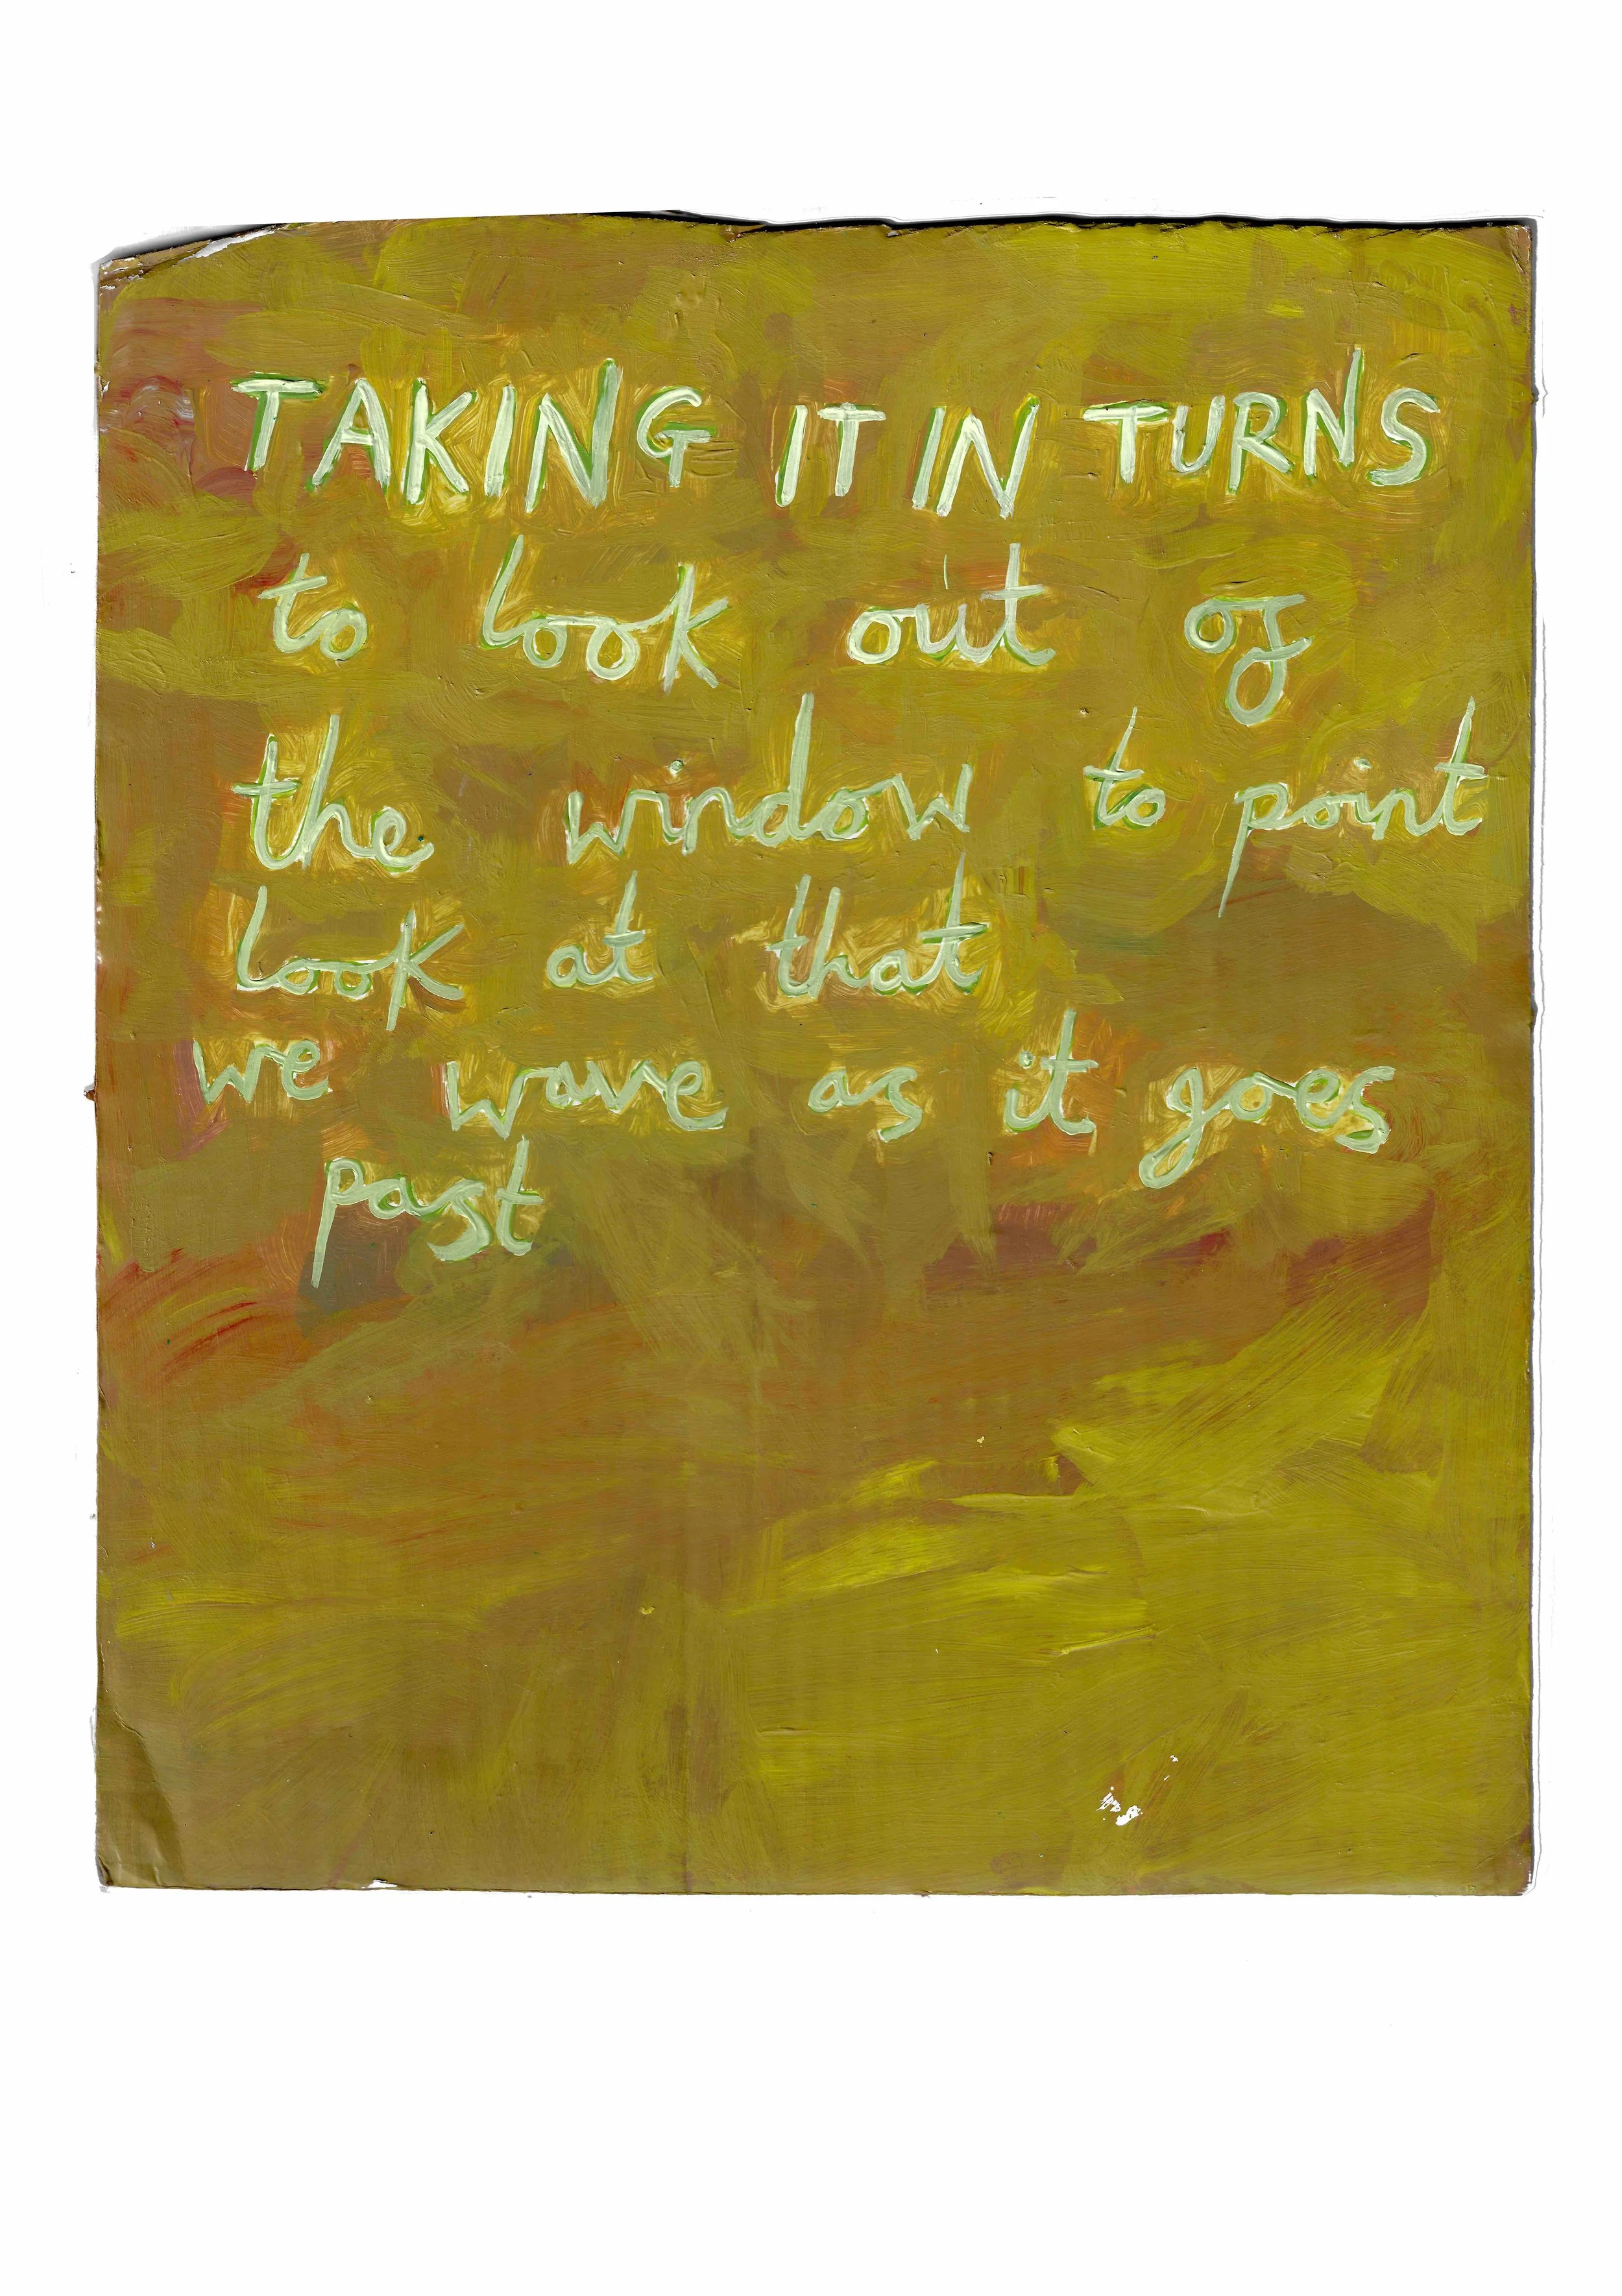 TAKING IT IN TURNS
to look out of
the window to point
look at that
we wave as it goes
past